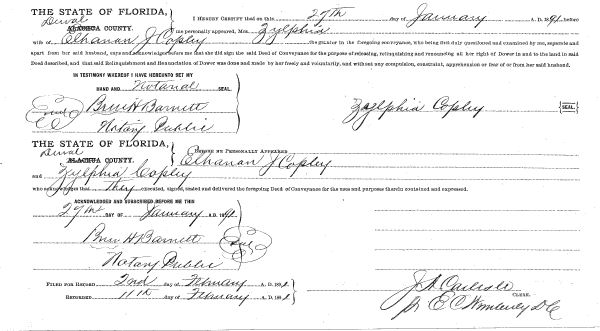 THE STATE OF FLORIDA,
Duval
ALACHUA COUNTY.
I HEREBY CERTIFY that on this 27th day of January A. D. 1891, before
me personally appeared, Mrs. Zylphia
wife of Elhanan J Copley the grantor in the foregoing conveyance, who being first duly questioned and examined by me, separate and
apart from her said husband, says and acknowledges before me that she did sign the said Deed of Conveyance for the purpose of releasing, relinquishing and renouncing all her right of Dower in and to the land in said
Deed described, and that said Relinquishment and Renunciation of Dower was done and made by her freely and voluntarily, and without any compulsion, constraint, apprehension or fear of or from her said husband.
IN TESTIMONY WHEREOF I HAVE HEREUNTO SET MY
HAND AND Notarial SEAL.
Burr H Barnett
Seal
Notary Public
Zylphia Copley {SEAL}
THE STATE OF FLORIDA,
Duval
ALACHUA COUNTY.
BEFORE ME PERSONALLY APPEARED Elhanan J Copley
and Zylphia Copley
who acknowledges that they executed, signed, sealed and delivered the foregoing Deed of Conveyance for the uses and purposes therein contained and expressed.
ACKNOWLEDGED AND SUBSCRIBED BEFORE ME THIS
27th DAY OF January A.D. 1891
Burr H Barnett
Seal
Notary Public
FILED FOR RECORD 2nd day of February A. D. 1891
RECORDED 11th day of February A. D. 1891
J A Carlisle
CLERK.
pr E C Wimberly D C